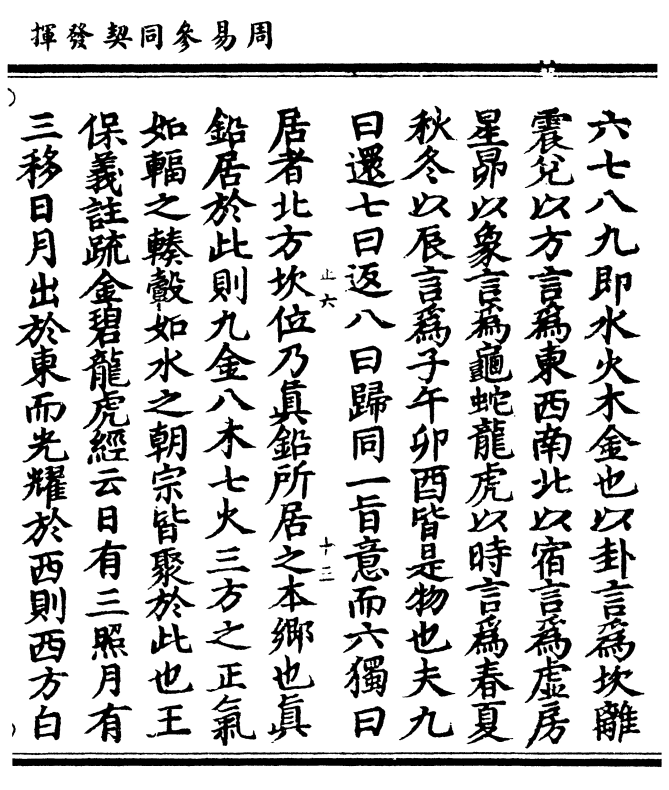 周易參同契發揮
六七八九即水火木金也以卦言爲坎離
震兌以方言爲東西南北以宿言爲虛房
星昴以象言爲龜蛇龍虎以時言爲春夏
秋冬以辰言爲子午卯酉皆是物也夫九
曰還七曰返八曰歸同一旨意而六獨曰
止六
十三
居者北方坎位乃眞鉛所居之本鄉也眞
鉛居於此則九金八木七火三方之正氣
如輻之輳轂如水之朝宗皆聚於此也王
保義註疏金碧龍虎經云日有三照月有
三移日月出於東而光耀於西則西方白